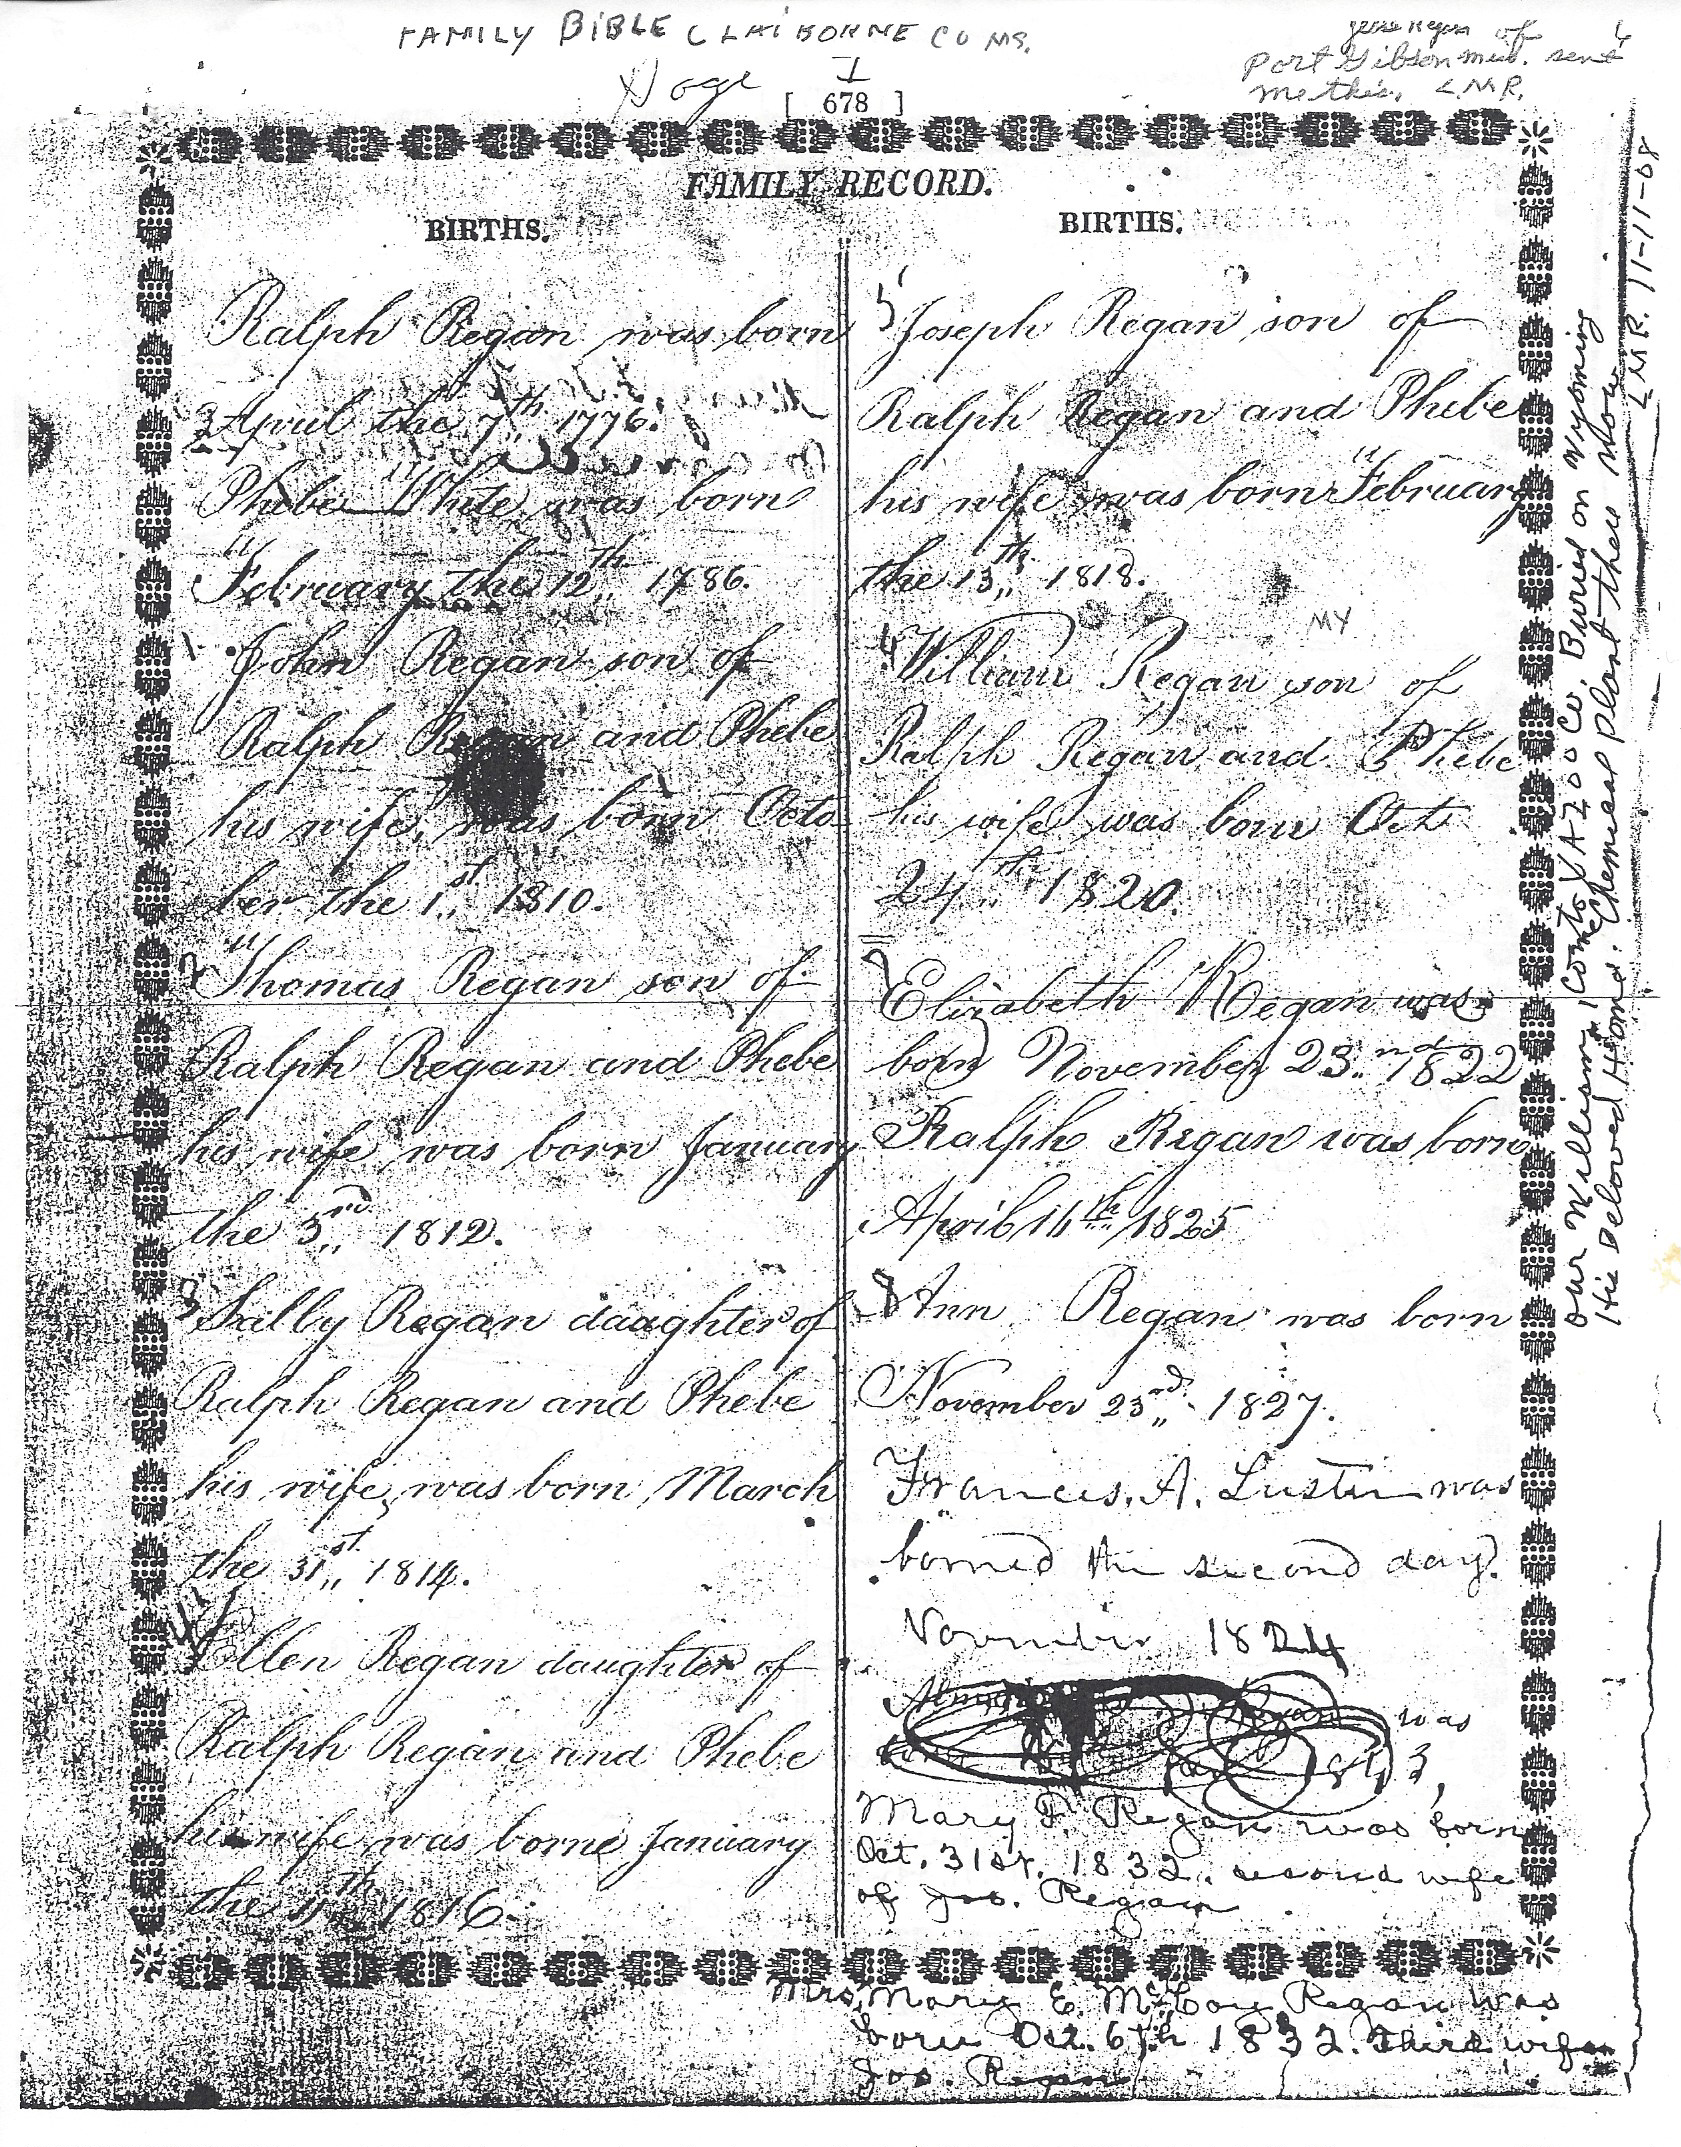 FAMILY BIBLE CLAIBORNE CO MS.
Jesse Regan of
Port Gibson Miss. sent
me this. L.M.R.
Page I
[ 678 ]
FAMILY RECORD.
BIRTHS.
Ralph Regan was born
April the 7th 1776.
Phebe White was born
February the 12th 1786.
1 John Regan son of
Ralph Regan and Phebe
his wife, was born Octo
ber the 1st 1810.
2 Thomas Regan son of
Ralph Regan and Phebe
his wife was born January
the 3rd 1812.
3 Sally Regan daughter of
Ralph Regan and Phebe
his wife, was born March
the 31st 1814.
Ellen Regan daughter of
Ralph Regan and Phebe
his wife was borne January
the 1816.
BIRTHS.
5 Joseph Regan son of
Ralph Regan and Phebe
his wife was born February
the 13th 1818.
MY
William Regan son of
Ralph Regan and Phebe
his wife was born Oct
24th 1820.
Elizabeth Regan was
born November 23nd 1822
Ralph Regan was born
April 1825
8 Ann Regan was born
November 23rd 1827.
Frances. A. Lustin was
borned the second day.
November 1824
Regan was
born 1843,
Mary F. Regan was born
Oct. 31st. 1832. second wife
of Jos. Regan
Mrs. Mary E. McCoy Regan was
born Oct. 6th 1832. Third wife
Jos. Regan
Our William, Come to YAZOO Co. Buried on Wyoming
His Beloved Home. Chemical plant there now
L M R. 11-11-08